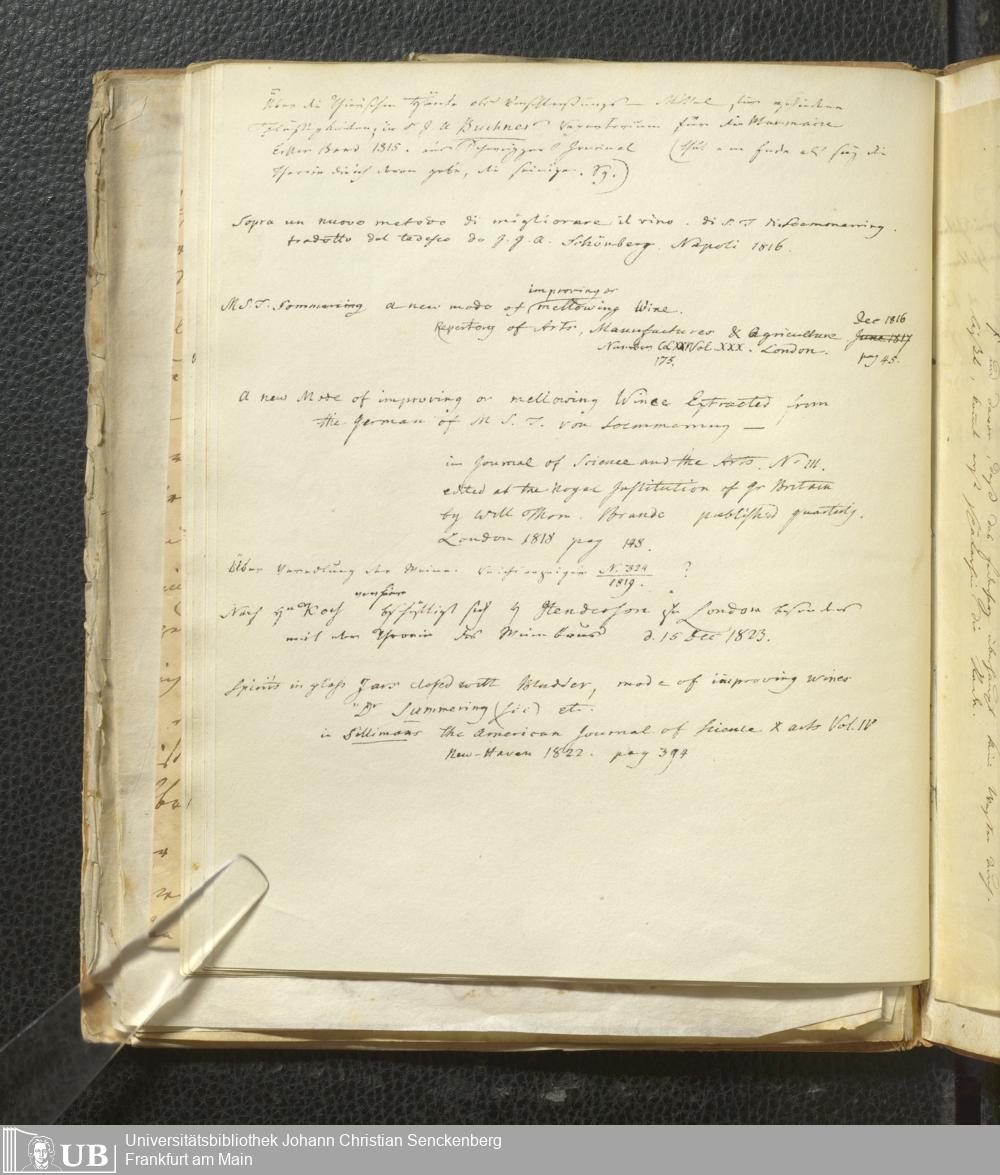 Über die thierischen Häute als Verschließungs- Mittel für
Flüssigkeiten, in J. A Buchner's Repertorium für die Pharmacie
Erster Band 1815. aus Schweigger's Journal (thut am Ende als sey die
Theorie die ich davon gebe, die seinige. Sg.)
Sopra un nuovo metodo di migliorare il vino. di S. T di Soemmerring.
tradotto dal tedesco da J. J. A. Schönberg. Napoli 1816.
improving or
M S. T. Sommering a new mode of mellowing Wine.
Dec 1816
Repertory of Arts, Manufactures & Agriculture June 1817
Number CLXXV Vol. XXX. London. pg 45.
175.
A new Mode of improving or mellowing Wines Extracted from
the German of M S. T. von Soemmerring —
in Journal of Science and the Arts. No III.
edited at the Royal Institution of Gr Britain
by Will Thom. Brande published quarterly.
London 1818 pag 148.
Über Veredlung der Weine. Reichsanzeiger No. 324 ?
1819.
Nach Hn Koch beschäftigt sich H Henderson zu London besonders
mit der Theorie des Weinbaues d. 15 Dec 1823.
Spirits in glass Jars closed with Bladder, mode of improving wines
"Dr Summering (sic) etc.
in Sillimans the American Journal of Science & arts Vol. IV
New-Haven 1822. pag 394
UB
Universitätsbibliothek Johann Christian Senckenberg
Frankfurt am Main